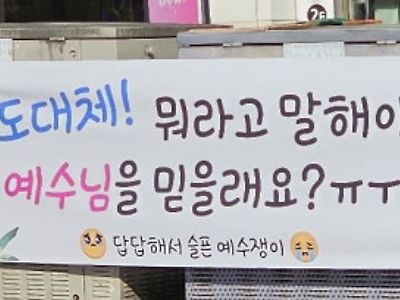 도대체! 뭐라고 말해야
예수님을 믿을래요?ㅠㅜ
답답해서 슬픈 예수쟁이